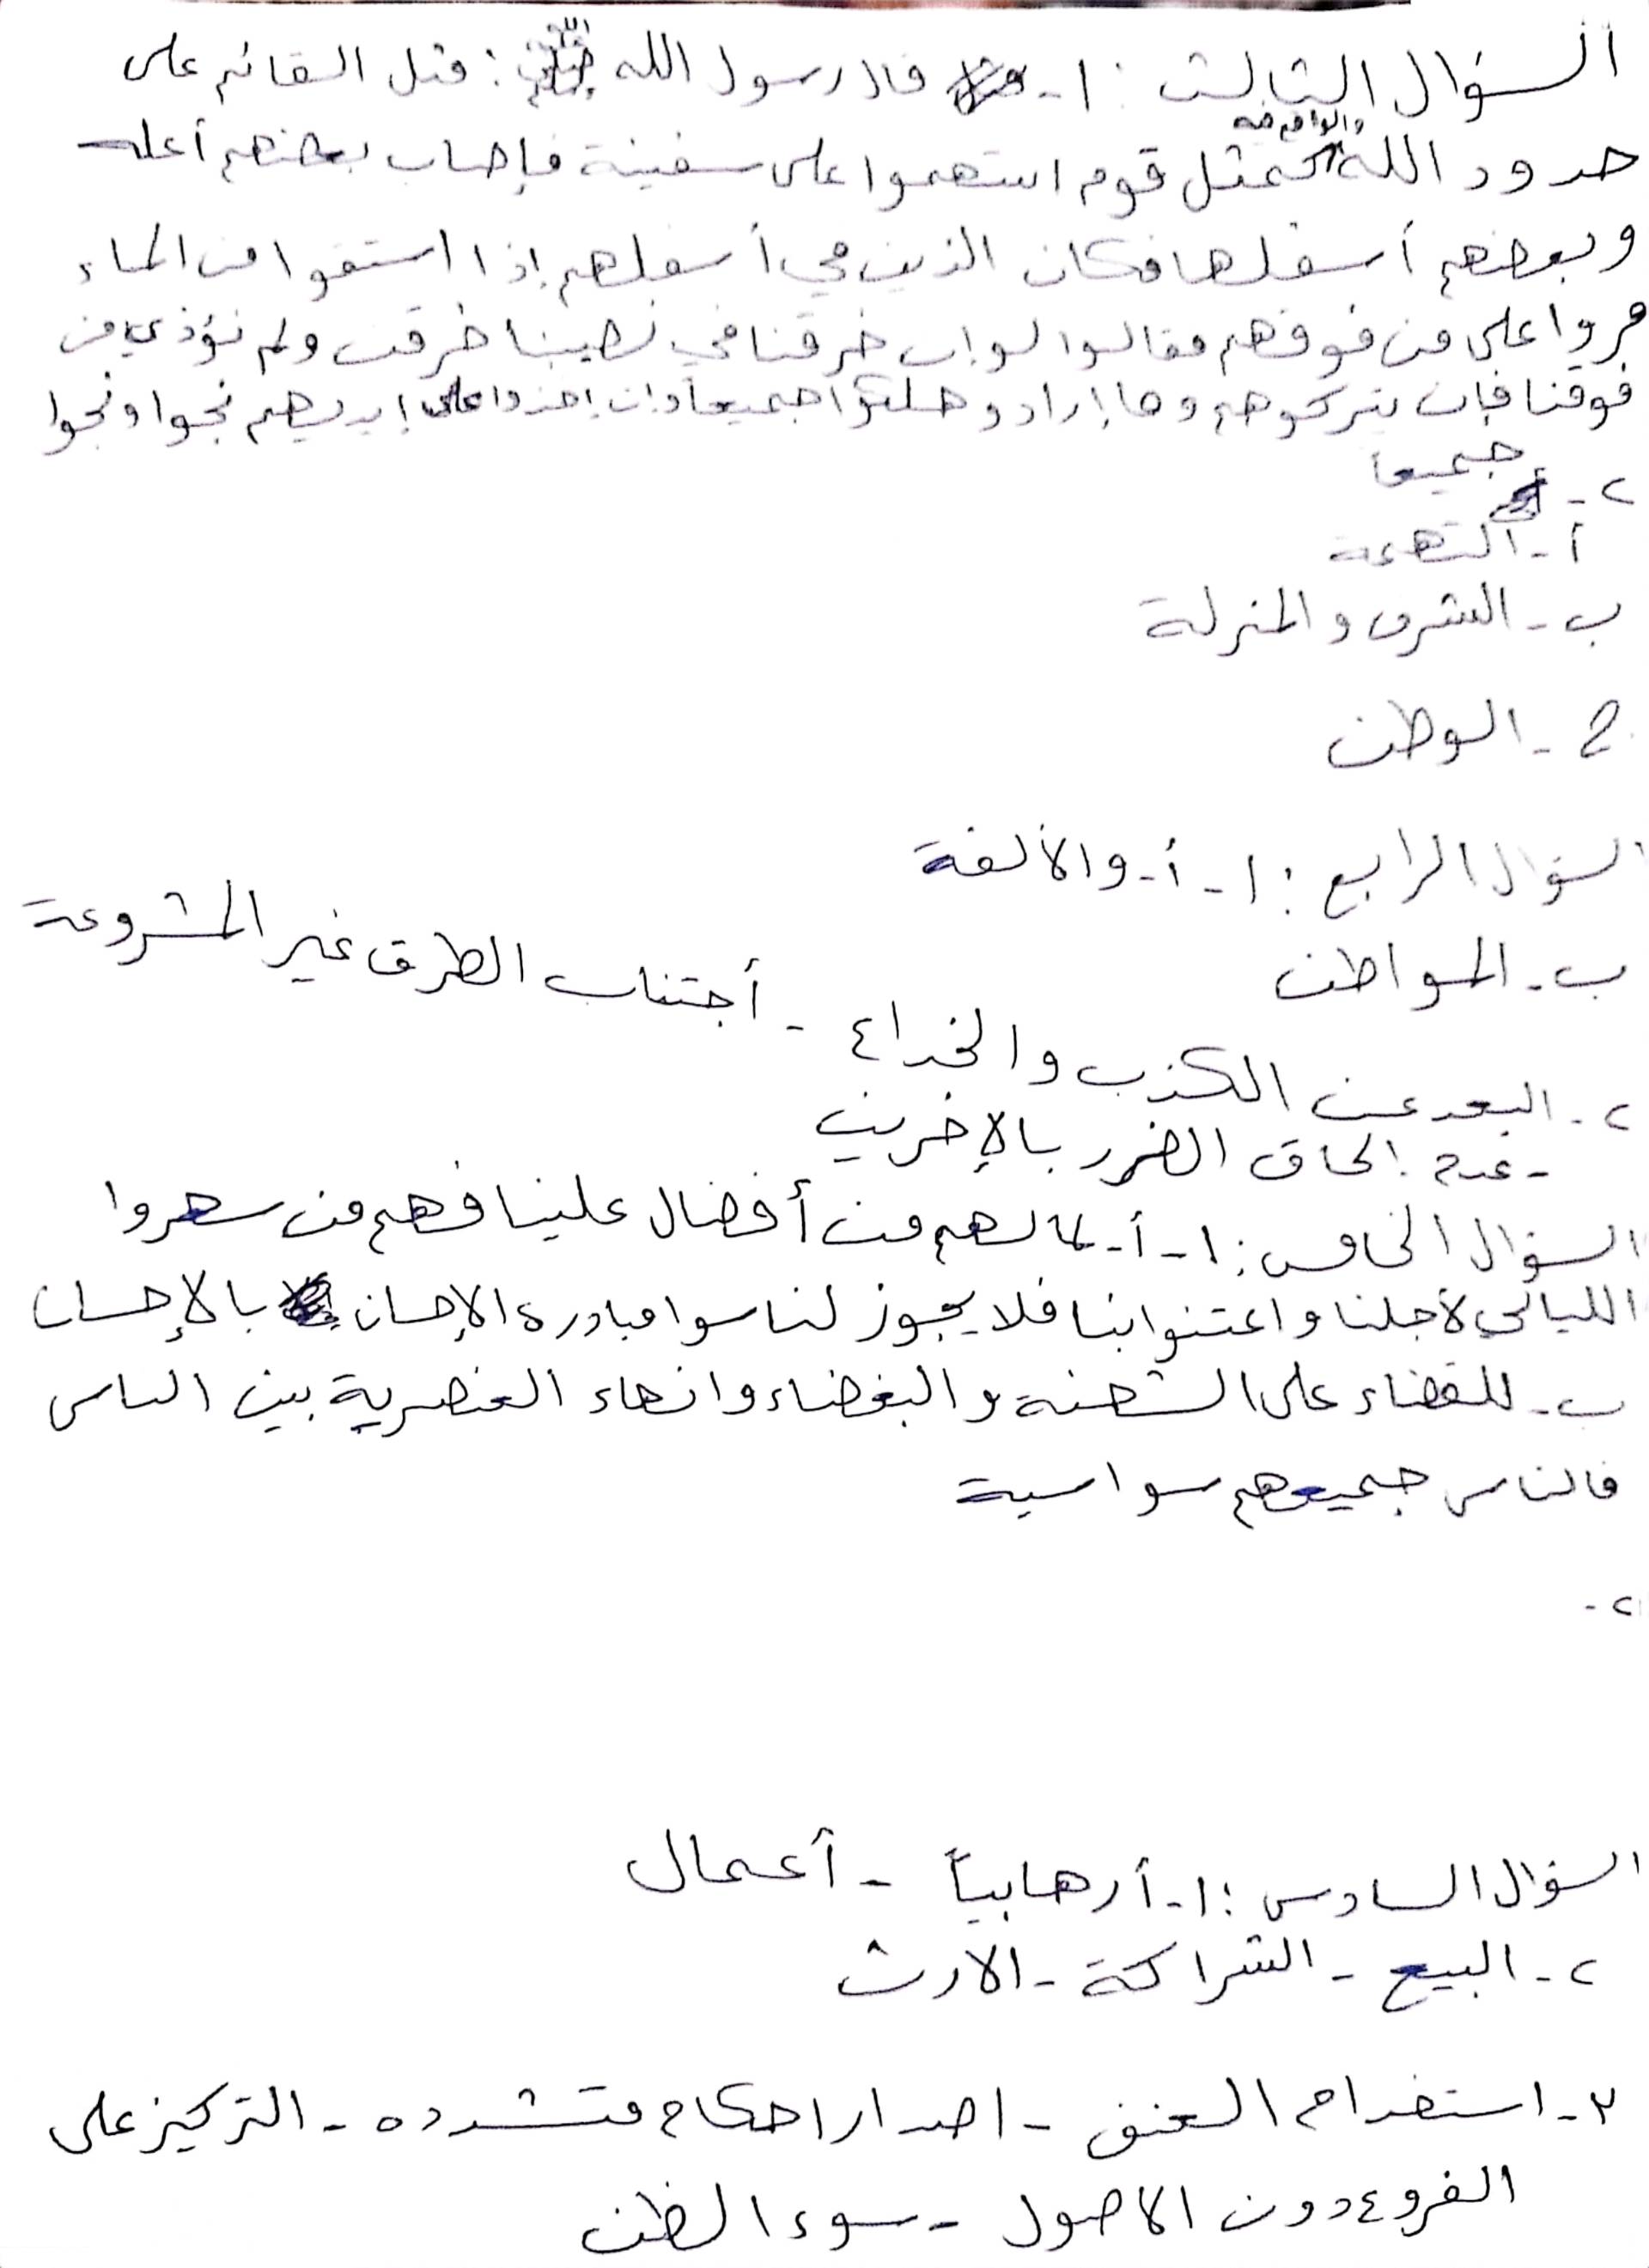 السؤال الثالث: ١- قال رسول الله ﷺ: مثل القائم على
حدود الله والواقع فيه كمثل قوم استهموا على سفينة فإصاب بعضهم أعله
وبعضهم أسفلها فكان الذين في أسفلهم إذا استقوا من الماء
مروا على من فوقهم فقالوا لو ان خرقنا في نصيبنا خرقت ولم نؤذي من
فوقنا فإن يتركوهم وما إرادو هلكوا جميعاً وان إخذوا على إيديهم نجوا ونجوا
جميعاً
٢-
أ- التهمة
ب- الشرف والمنزلة
ج- الوطن
السؤال الرابع: ١- أ- والألفة
ب- المواطن
٢- البعد عن الكذب والخداع - أجتناب الطرق غير المشروعة
- عدم الحاق الضرر بالإخرين
السؤال الخامس: ١- أ- لما لهم من أفضال علينا فهم من سهروا
الليالي لأجلنا واعتنوا بنا فلا يجوز لنا سوا مبادرة الإحسان بالإحسان
ب- للقضاء على الشحنة والبغضاء وانهاء العنصرية بين الناس
فالناس جميعهم سواسية
٢-
السؤال السادس: ١- أرهابياً - أعمال
٢- البيع - الشراكة - الارث
٣- استخدام العنف - اصدار احكام متشدده - التركيز على
الفروع دون الاصول - سوء الظن